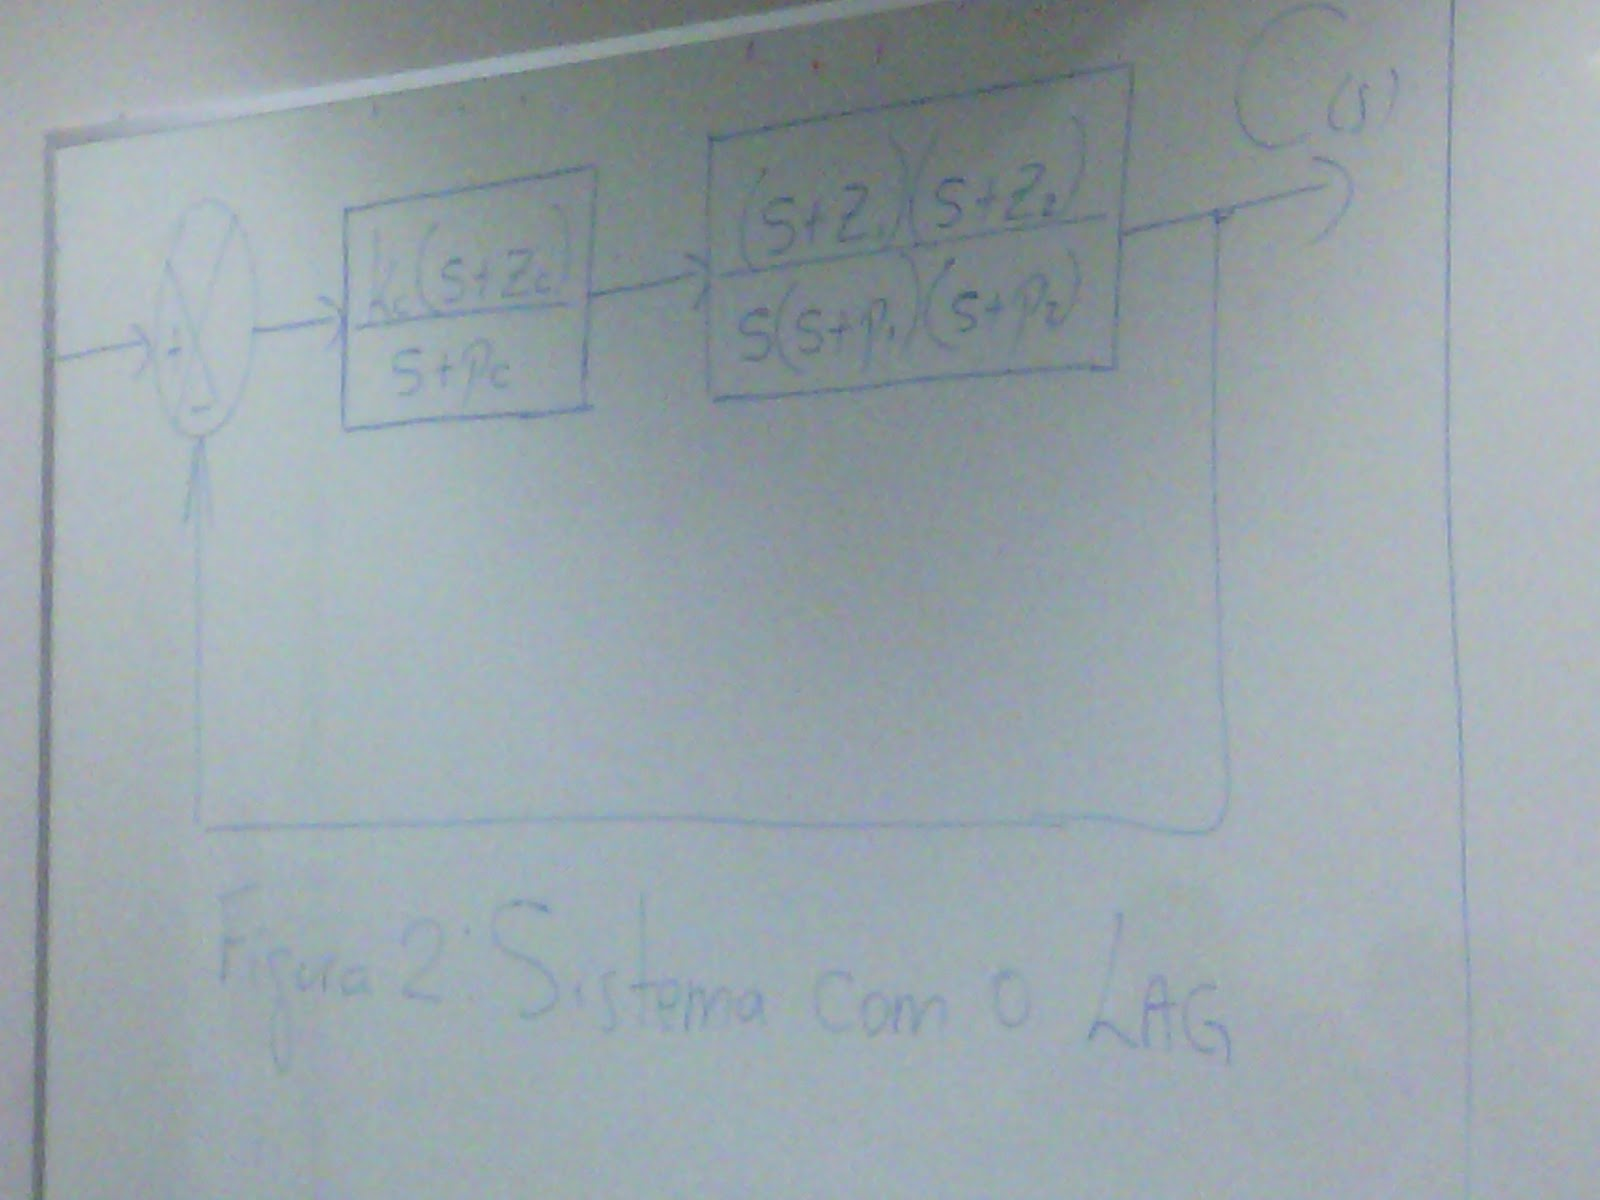 C(s)
+
-
kc(s+zc)
s+pc
(s+z1)(s+z2)
s(s+p1)(s+p2)
Figura 2: Sistema com o LAG